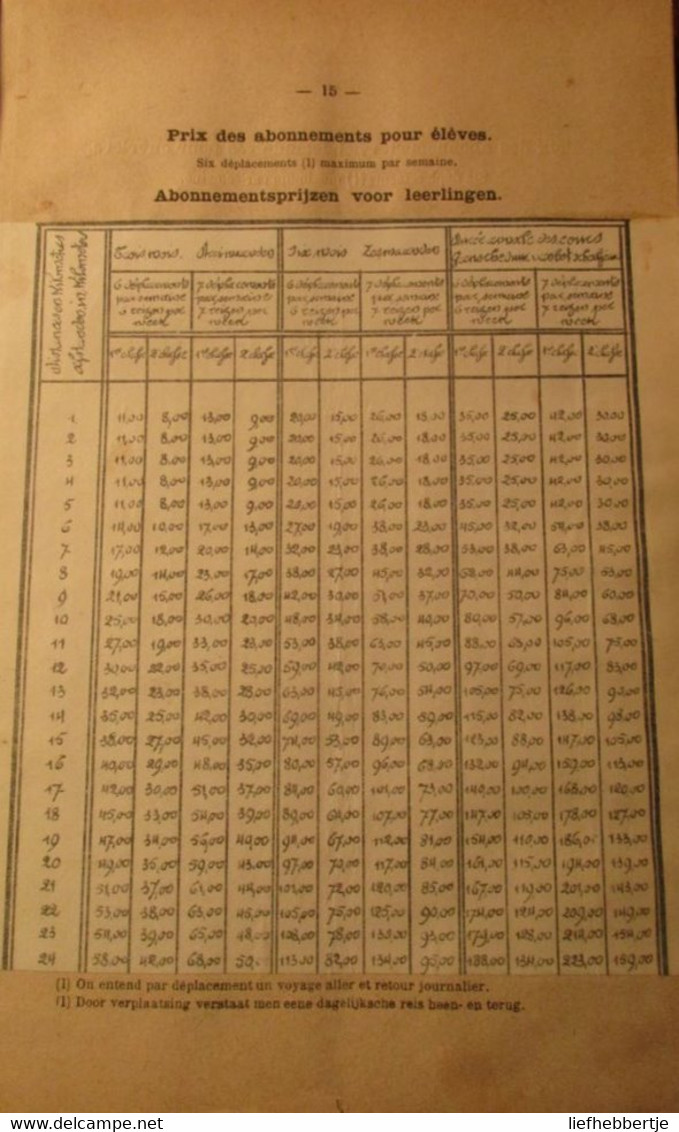 — 15 —
Prix des abonnements pour élèves.
Six déplacements (1) maximum par semaine.
Abonnementsprijzen voor leerlingen.
Trois mois. Drie maanden Six mois Zes maanden
6 déplacements par semaine 7 déplacements par semaine 6 déplacements par semaine 7 déplacements par semaine 6 déplacements par semaine 7 déplacements par semaine
1 11,00 8,00 13,00 9,00 20,00 15,00 26,00 18,00 35,00 25,00 42,00 30,00
2 11,00 8,00 13,00 9,00 20,00 15,00 26,00 18,00 35,00 25,00 42,00 30,00
3 11,00 8,00 13,00 9,00 20,00 15,00 26,00 18,00 35,00 25,00 42,00 30,00
4 11,00 8,00 13,00 9,00 20,00 15,00 26,00 18,00 35,00 25,00 42,00 30,00
5 11,00 8,00 13,00 9,00 20,00 15,00 26,00 18,00 35,00 25,00 42,00 30,00
6 14,00 10,00 17,00 13,00 27,00 19,00 23,00 45,00 32,00 54,00 38,00
7 17,00 12,00 20,00 14,00 32,00 23,00 38,00 28,00 53,00 38,00 63,00 45,00
8 19,00 14,00 23,00 17,00 38,00 27,00 45,00 32,00 44,00 75,00 53,00
9 21,00 15,00 26,00 18,00 42,00 30,00 51,00 37,00 70,00 50,00 84,00 60,00
10 25,00 18,00 30,00 20,00 48,00 34,00 58,00 40,00 80,00 57,00 96,00 68,00
11 27,00 19,00 33,00 23,00 53,00 38,00 63,00 45,00 88,00 63,00 105,00 75,00
12 30,00 22,00 35,00 25,00 59,00 42,00 70,00 50,00 97,00 69,00 117,00 83,00
13 32,00 23,00 38,00 28,00 63,00 45,00 76,00 54,00 105,00 75,00 126,00 90,00
14 35,00 25,00 42,00 30,00 69,00 49,00 83,00 59,00 115,00 82,00 138,00 98,00
15 38,00 27,00 45,00 32,00 74,00 53,00 89,00 63,00 123,00 88,00 147,00 105,00
16 40,00 29,00 48,00 35,00 80,00 57,00 96,00 68,00 132,00 94,00 159,00 113,00
17 42,00 30,00 51,00 37,00 84,00 60,00 101,00 73,00 140,00 100,00 168,00 120,00
18 45,00 33,00 54,00 39,00 89,00 64,00 107,00 77,00 147,00 178,00 127,00
19 47,00 34,00 56,00 40,00 94,00 67,00 112,00 81,00 154,00 110,00 186,00 133,00
20 49,00 35,00 59,00 43,00 97,00 70,00 117,00 84,00 161,00 115,00 194,00 139,00
21 51,00 37,00 61,00 44,00 101,00 72,00 120,00 85,00 167,00 119,00 201,00 143,00
22 53,00 38,00 63,00 45,00 105,00 75,00 125,00 90,00 174,00 124,00 209,00 149,00
23 54,00 39,00 65,00 48,00 108,00 78,00 130,00 93,00 179,00 128,00 154,00
24 58,00 42,00 68,00 50, 113,00 82,00 134,00 95,00 188,00 134,00 223,00 159,00
(1) On entend par déplacement un voyage aller et retour journalier.
(1) Door verplaatsing verstaat men eene dagelijksche reis heen- en terug.
liefhebbertje